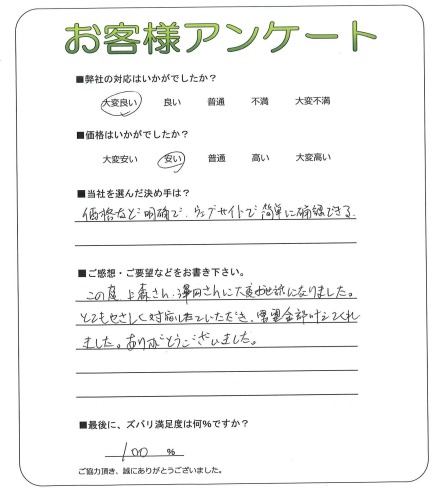 お客様アンケート
■弊社の対応はいかがでしたか？
大変良い 良い 普通 不満 大変不満
■価格はいかがでしたか？
大変安い 安い 普通 高い 大変高い
■当社を選んだ決め手は？
価格など明確で、ウェブサイトで簡単に確認できる
■ご感想・ご要望などをお書き下さい。
この度、上森さん、澤田さんに大変お世話になりました。
とてもやさしく対応していただき、要望全部叶えてくれ
ました。ありがとうございました。
■最後に、ズバリ満足度は何％ですか？
100 ％
ご協力頂き、誠にありがとうございました。